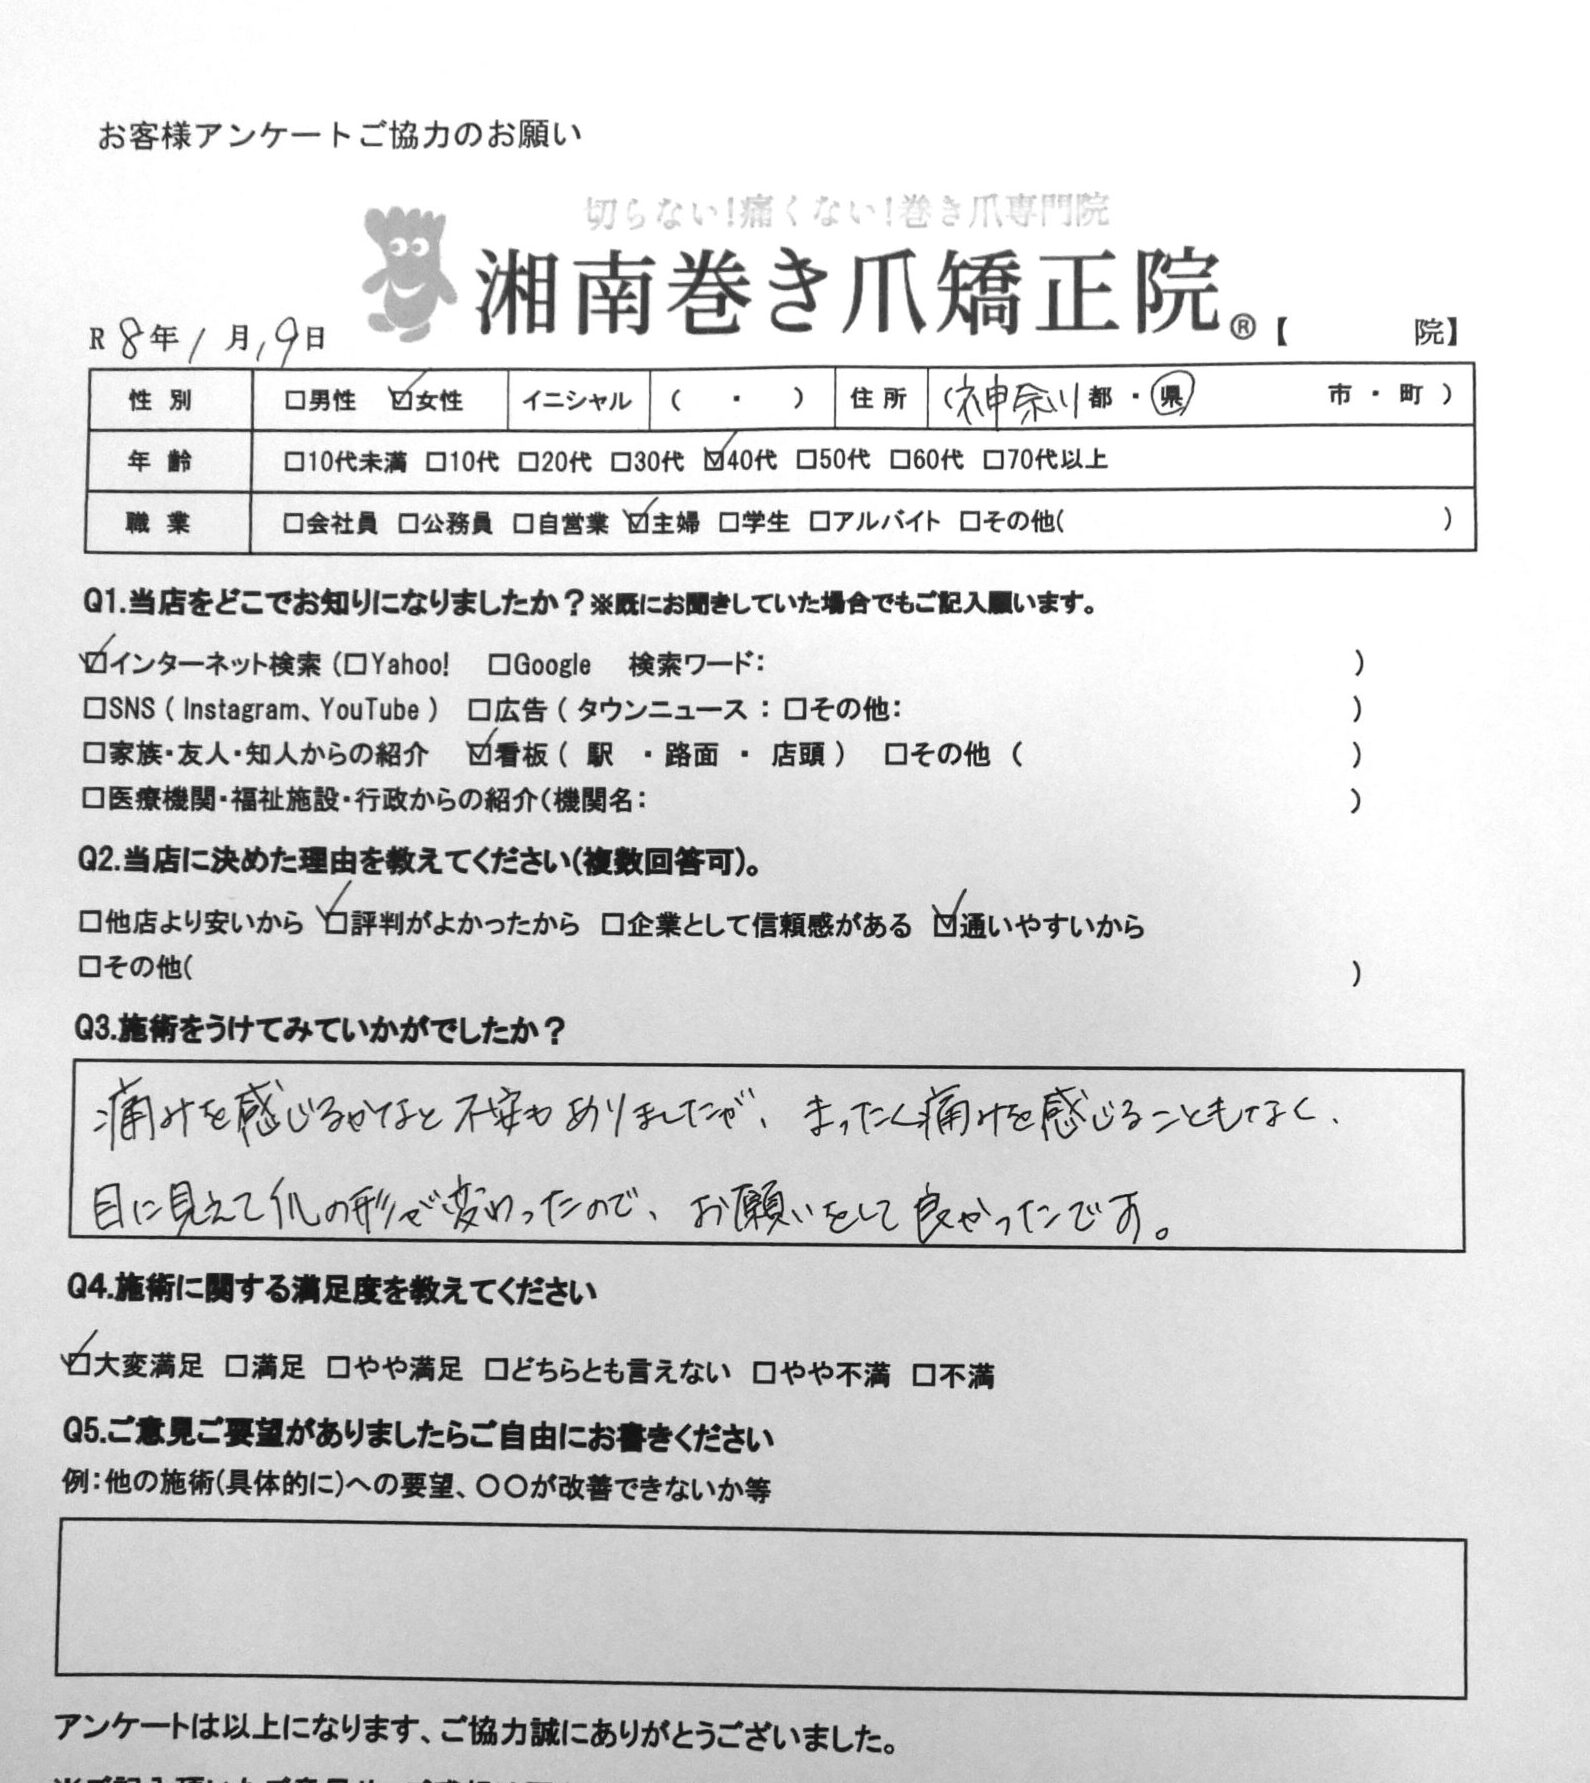 お客様アンケートご協力のお願い
切らない!痛くない!巻き爪専門院
湘南巻き爪矯正院® 【 院】
R 8年 1月 19日
性別 □男性 ☑女性 イニシャル ( ・ ) 住所 (神奈川 都・県 市・町 )
年齢 □10代未満 □10代 □20代 □30代 ☑40代 □50代 □60代 □70代以上
職業 □会社員 □公務員 □自営業 ☑主婦 □学生 □アルバイト □その他( )
Q1.当店をどこでお知りになりましたか？※既にお聞きしていた場合でもご記入願います。
☑インターネット検索 (□Yahoo! □Google 検索ワード: )
□SNS ( Instagram、YouTube ) □広告 ( タウンニュース : □その他: )
□家族・友人・知人からの紹介 ☑看板 ( 駅 ・ 路面 ・ 店頭 ) □その他 ( )
□医療機関・福祉施設・行政からの紹介(機関名: )
Q2.当店に決めた理由を教えてください(複数回答可)。
□他店より安いから ☑評判がよかったから □企業として信頼感がある ☑通いやすいから
□その他( )
Q3.施術をうけてみていかがでしたか？
痛みを感じるかなと不安もありましたが、まったく痛みを感じることもなく、
目に見えて爪の形が変わったので、お願いをして良かったです。
Q4.施術に関する満足度を教えてください
☑大変満足 □満足 □やや満足 □どちらとも言えない □やや不満 □不満
Q5.ご意見ご要望がありましたらご自由にお書きください
例:他の施術(具体的に)への要望、〇〇が改善できないか等
アンケートは以上になります、ご協力誠にありがとうございました。